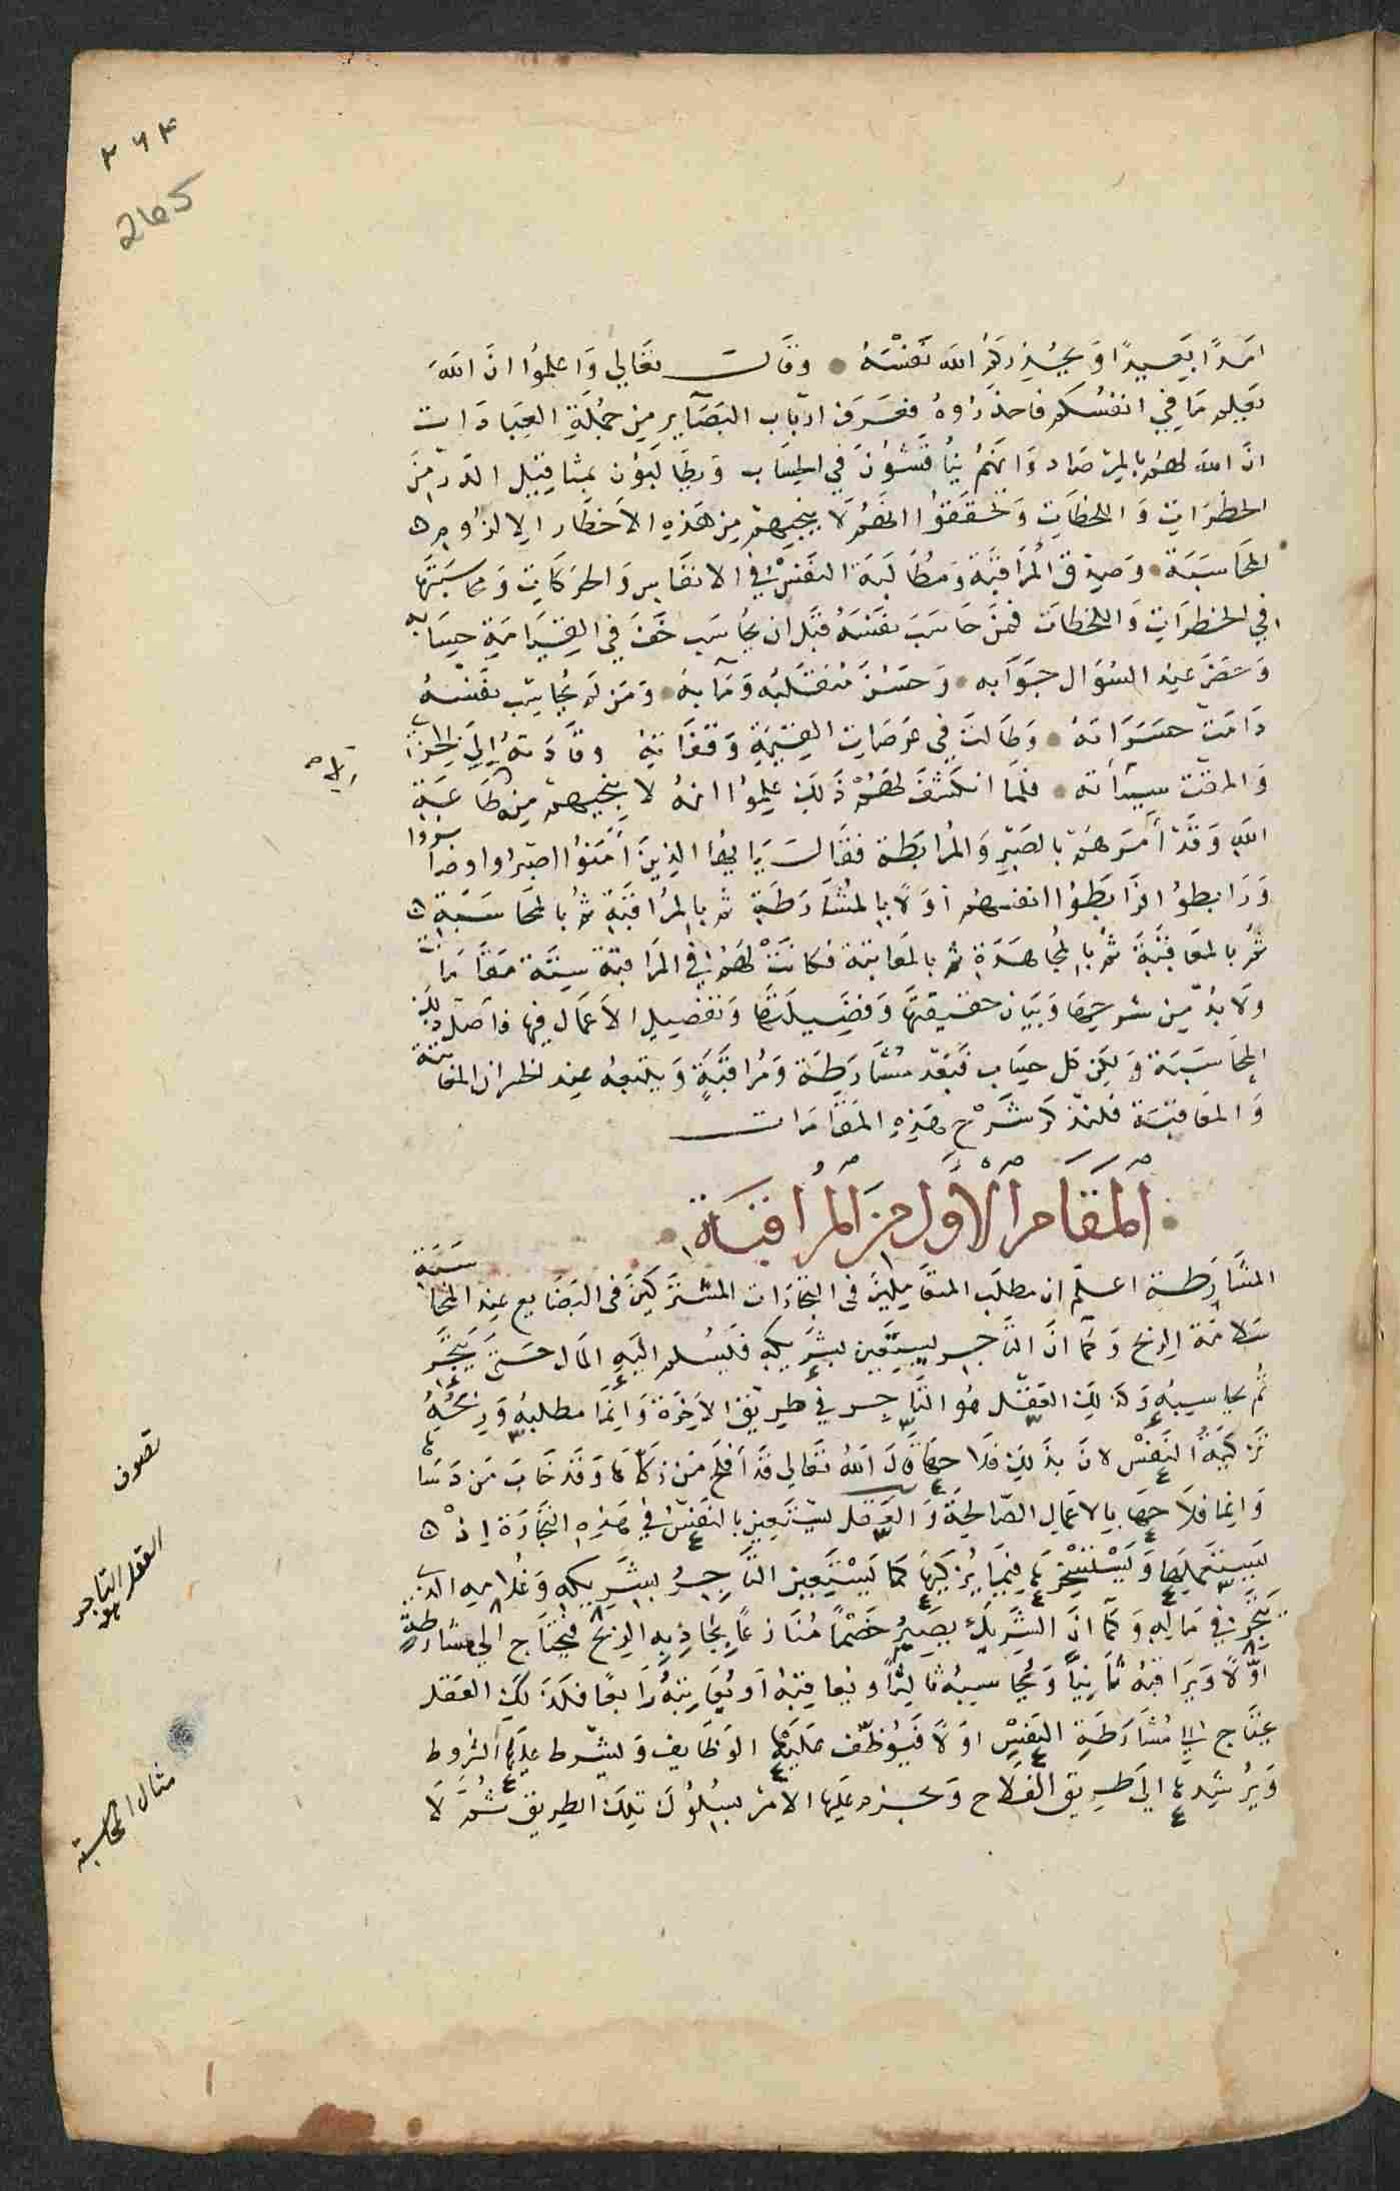 ٢٦٤
265
امدًا بعيدًا ويحذركم الله نفسه وقال تعالى واعلموا ان الله
يعلم ما في انفسكم فاحذروه فعرف ارباب البصآير من جملة العباد ات
ان الله لهم بالمرصاد وانهم يناقشون في الحساب ويطالبون بمثاقيل الذر من
الخطرات واللحظات وتحققوا انهم لا ينجيهم من هذه الاخطار الا لزوم
المحاسبة وصدق المراقبة ومطالبة النفس في الانفاس والحركات ومحاسبتها
في الخطرات واللحظات فمن حاسب نفسه قبل ان يحاسب خف في القيامة حسابه
وحضر عند السؤال جوابه وحسن منقلبه ومآبه ومن لم يحاسب نفسه
دامت حسراته وطالت في عرصات القيمة وقفاته وقادته إلى الخزى
والمقت سيآته فلما انكشف لهم ذلك علموا انه لا ينجيهم منه طاعة
الله وقد أمرهم بالصبر والمرابطة فقال يا ايها الذين آمنوا اصبروا وصابروا
ورابطوا فرابطوا انفسهم أولا بالمشارطة ثم بالمراقبة ثم بالمحاسبة
ثم بالمعاقبة ثم بالمجاهدة ثم بالمعاتبة فكانت لهم في المرابطة ستة مقامات
ولا بد من شرحها وبيان حقيقتها وفضيلتها وتفضيل الاعمال فيها واصل ذلك
المحاسبة ولكن كل حساب فبعد مشارطة ومراقبة ويتبعه عند الخسران المعاتبة
والمعاقبة فلنذكر شرح هذه المقامات
المقام الأول من المراقبة
المشارطة اعلم ان مطلب المتعاملين فى التجارات المشتركين فى البضايع عند المحاسبة
سلامة الربح وكما ان التاجر يستعين بشريكه فيسلم اليه المال حتى يتجر
ثم يحاسبه وكذلك العقل هو التاجر في طريق الآخرة وانما مطلبه وربحه
تزكية النفس لان بذلك فلاحها قال الله تعالى قد افلح من زكاها وقد خاب من دساها
وانما فلاحها بالاعمال الصالحة والعقل يستعين بالنفس في هذه التجارة إذ
يستعملها ويستسخرها فيما يزكيها كما يستعين التاجر بشريكه وغلامه الذى
يتجر في ماله وكما ان الشريك يصير خصما منازعا يجاذبه الربح فيحتاج الى مشارطة
اولا ويراقبه ثانيا ويحاسبه ثالثا ويعاقبه او يعاتبه رابعا فكذلك العقل
يحتاج الى مشارطة النفس اولا فيوظف عليها الوظايف ويشرط عليها الشروط
ويرشدها إلى طريق الفلاح ويجزم عليها الامر بسلوك تلك الطريق ثم لا
تصوف
العقل هو التاجر
مثال المحاسبة